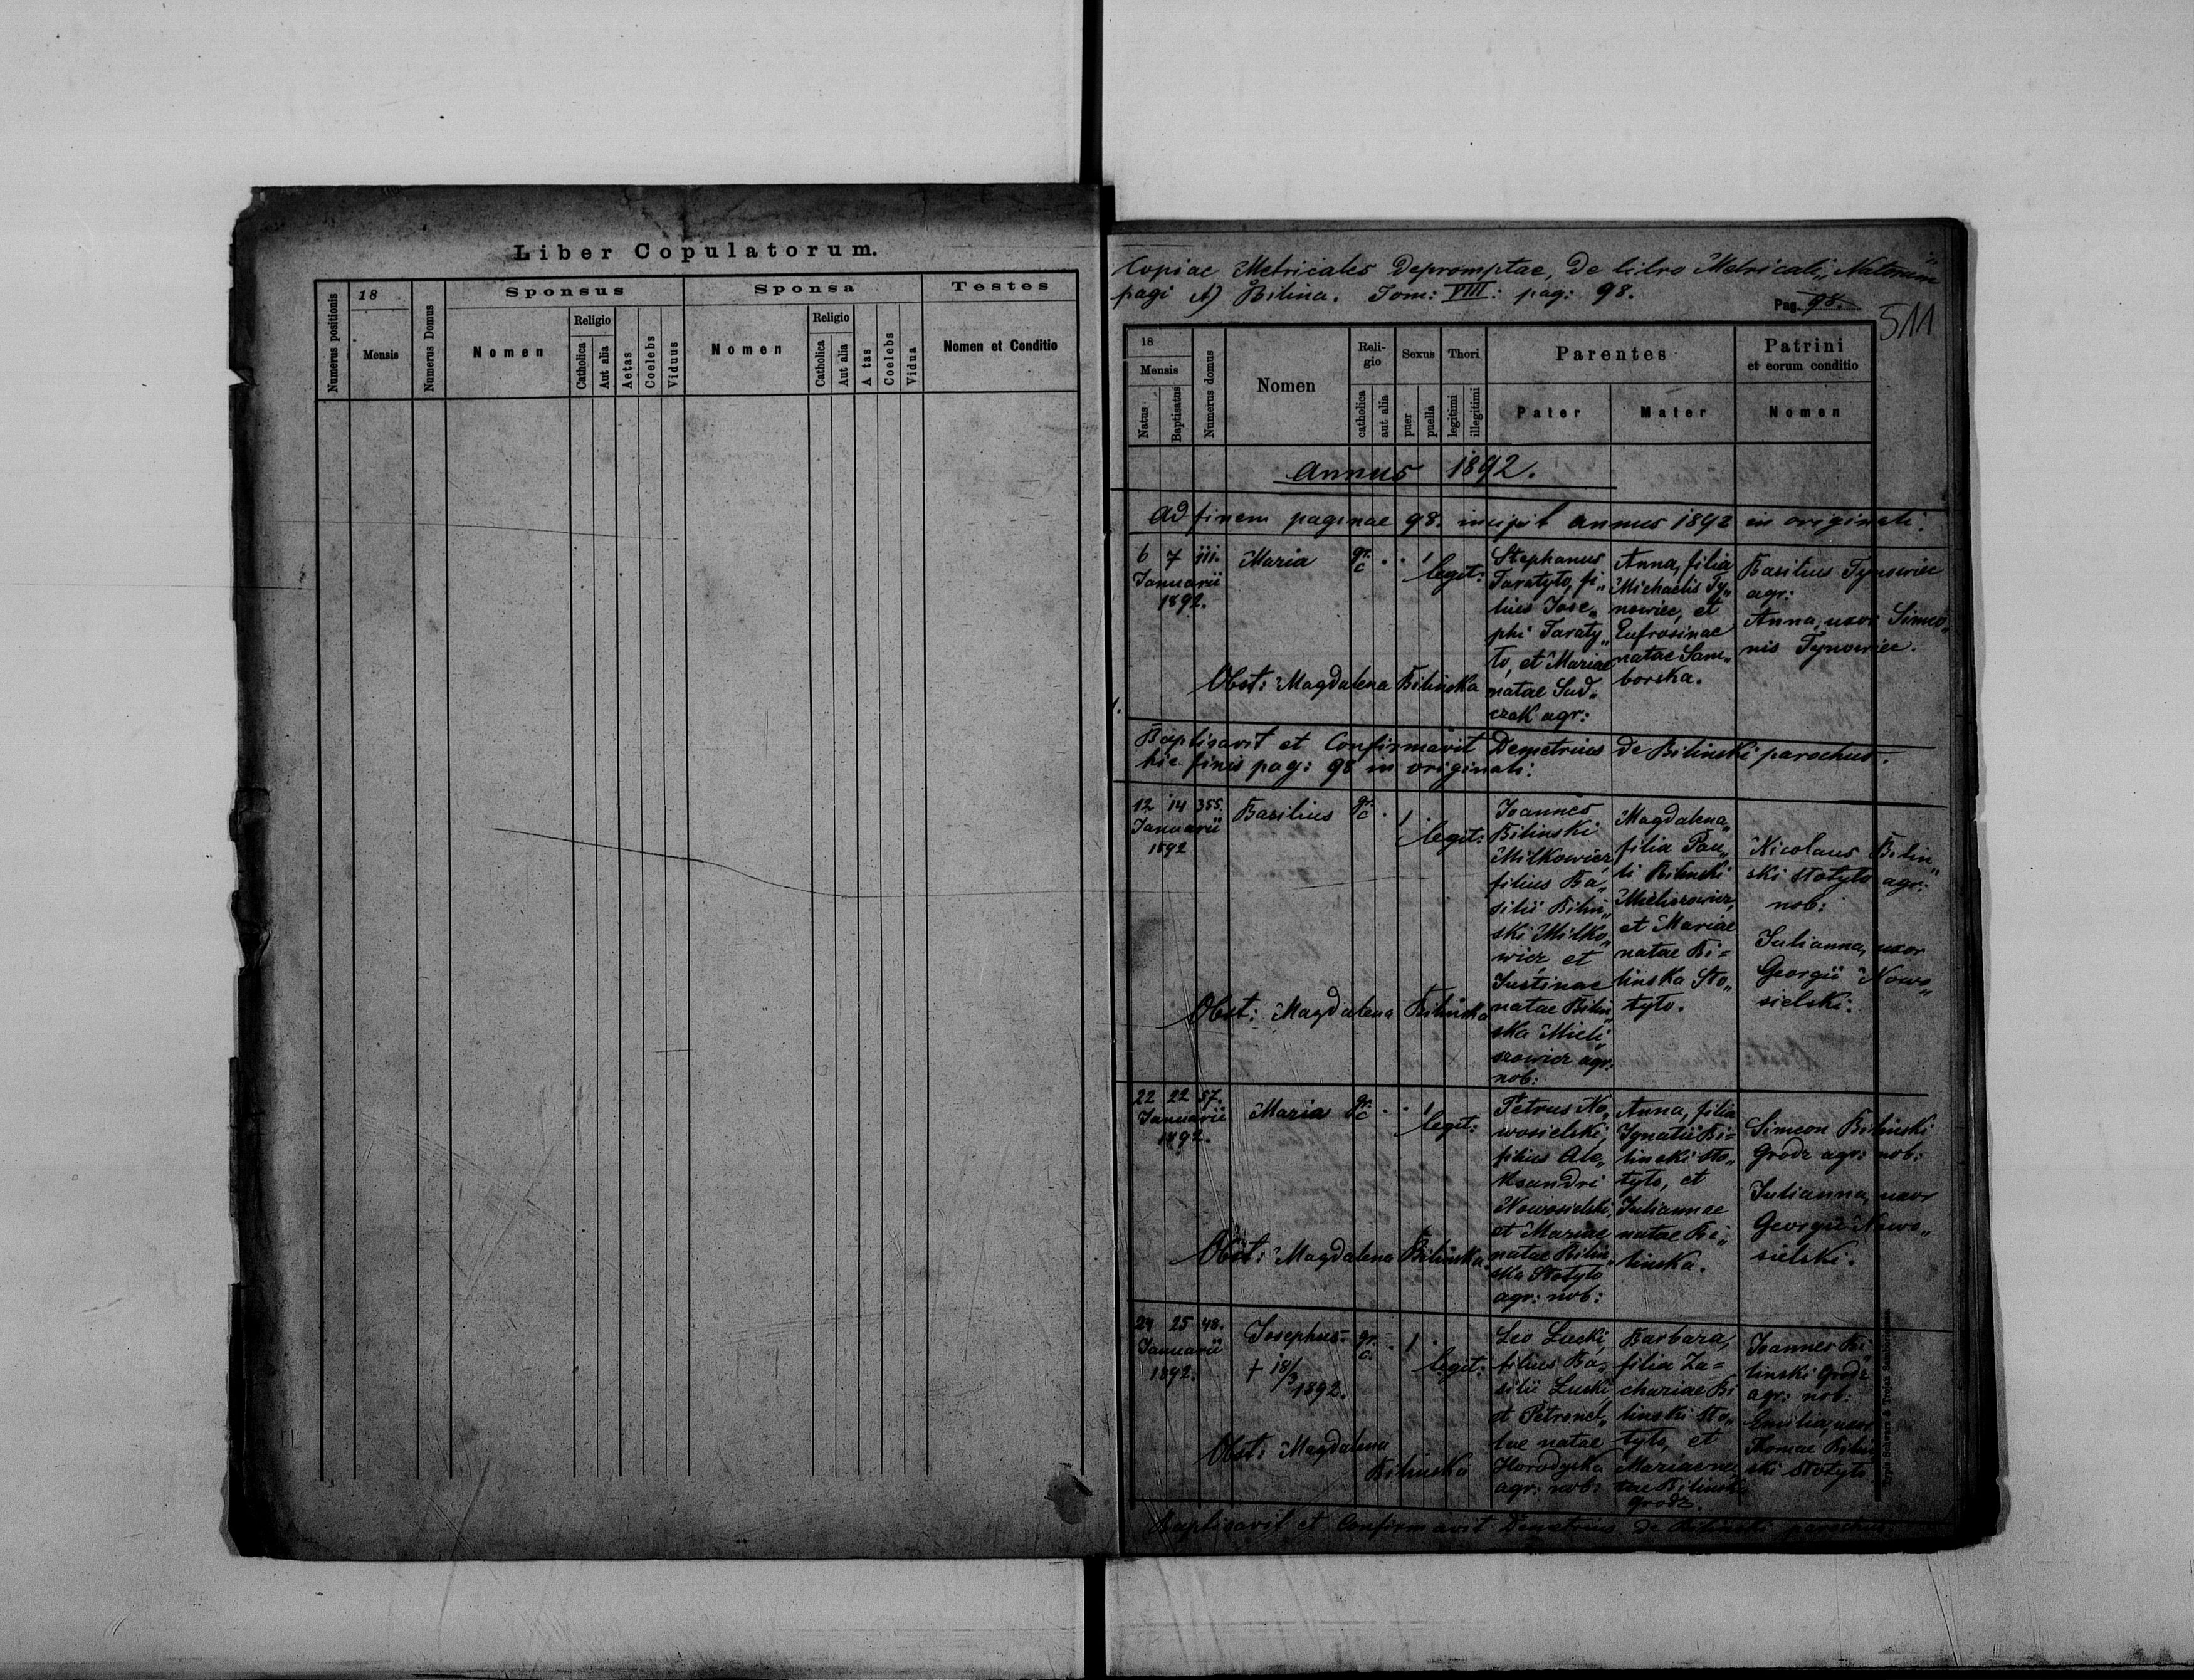 Liber Copulatorum.
Numerus positionis
18
Mensis
Numerus Domus
Sponsus
Nomen
Religio
Catholica
Aut alia
Aetas
Coelebs
Viduus
Sponsa
Nomen
Religio
Catholica
Aut alia
A tas
Coelebs
Vidua
Testes
Nomen et Conditio
Copiae Metricales Depromptae, De libro Metricali „Natorum"
pagi A) Bilina. Tom: VIII: pag: 98.
Pag. 98.
511
18
Mensis
Natus
Baptisatus
Numerus domus
Nomen
Reli-
gio
catholica
aut alia
Sexus
puer
puella
Thori
legitimi
illegitimi
Parentes
Pater
Mater
Patrini
et eorum conditio
Nomen
Annus 1892.
Ad finem paginae 98. incipit annus 1892 in originali.
6 7 111.
Januarii
1892.
Maria
gr.
c
. . 1
legit:
Stephanus
Taratyto, fi„
lius Jose„
phi Taraty„
to, et Mariae
natae Sud„
czak agr:
Anna, filia
Michaelis Ty„
nowiec, et
Eufrosinae
natae Sam„
borska.
Basilius Tynowiec
agr:
Anna, uxor Simeo„
nis Tynowiec.
Obst: Magdalena Bilinska
1.
Baptisavit et Confirmavit Demetrius de Bilinski parochus.
hic finis pag: 98 in originali:
12 14 355.
Januarii
1892
Basilius
gr.
c
. 1 .
legit:
Joannes
Bilinski
Milkowicz,
filius Ba„
silii Bilin„
ski Milko„
wicz et
Justinae
natae Bilin„
ska Mieli„
szowicz agr:
nob:
Magdalena,
filia Pau„
li Bilinski
Mieliszowicz,
et Mariae
natae Bi=
linska Sto„
tyto.
Nicolaus Bilin„
ski Stotyto agr:
nob:
Julianna, uxor
Georgii Nowo„
sielski:
Obst: Magdalena Bilinska
22 22 57.
Januarii
1892.
Maria
gr.
c
. . 1
legit:
Petrus No„
wosielski,
filius Ale„
ksandri
Nowosielski,
et Mariae
natae Bilin„
ska Stotyto
agr: nob:
Anna, filia
Ignatii Bi=
linski Sto„
tyto, et
Juliannae
natae Bi„
linska.
Simeon Bilinski
Grodz agr: nob:
Julianna, uxor
Georgii Nowo„
sielski.
Obst: Magdalena Bilinska
24 25 48.
Januarii
1892.
Josephus=
+ 18/3 1892.
gr.
c.
. 1 .
legit:
Leo Lucki,
filius Ba„
silii Lucki
et Petronel„
lae natae
Horodyska
agr: nob:
Barbara,
filia Za=
chariae Bi
linski Sto„
tyto, et
Mariae na
tae Bilinska
Grodz.
Joannes Bi„
linski Grodz
agr: nob:
Emilia, uxor
Thomae Bilin
ski Stotyto
Obst: Magdalena
Bilinska
Baptisavit et Confirmavit Demetrius de Bilinski parochus.